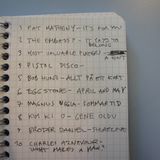 1 PAT METHENY - IT'S FOR YOU
2 THE EMBASSY - IT PAYS TO BELONG
3 MOST VALUABLE PLAYERS -
4 PISTOL DISCO -
5 BOB HUND - ALLT PÅ ETT KORT
6 EGGSTONE - APRIL AND MAY
7 MAGNUS UGGLA - SOMMARTID
8 KIM KI O - GENE OLDU
9 BRODER DANIEL - SHORELINE
10 CHARLES AZNAVOUR - WHAT MAKES A MAN?